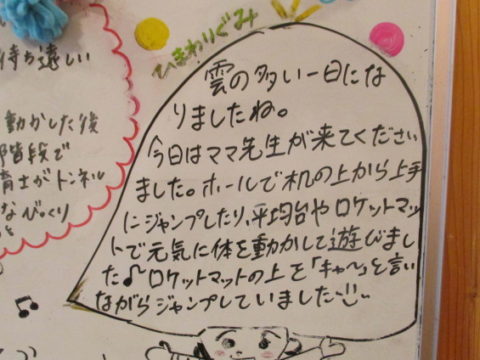 待ち遠しい
動かした後
階段で
育士がトンネル
なびっくり
ひまわりぐみ
雲の多い一日にな
りましたね。
今日はママ先生が来てください
ました。ホールで机の上から上手
にジャンプしたり、平均台やロケットマッ
トで元気に体を動かして遊びまし
た♪ロケットマットの上を「キャ〜」と言い
ながらジャンプしていました